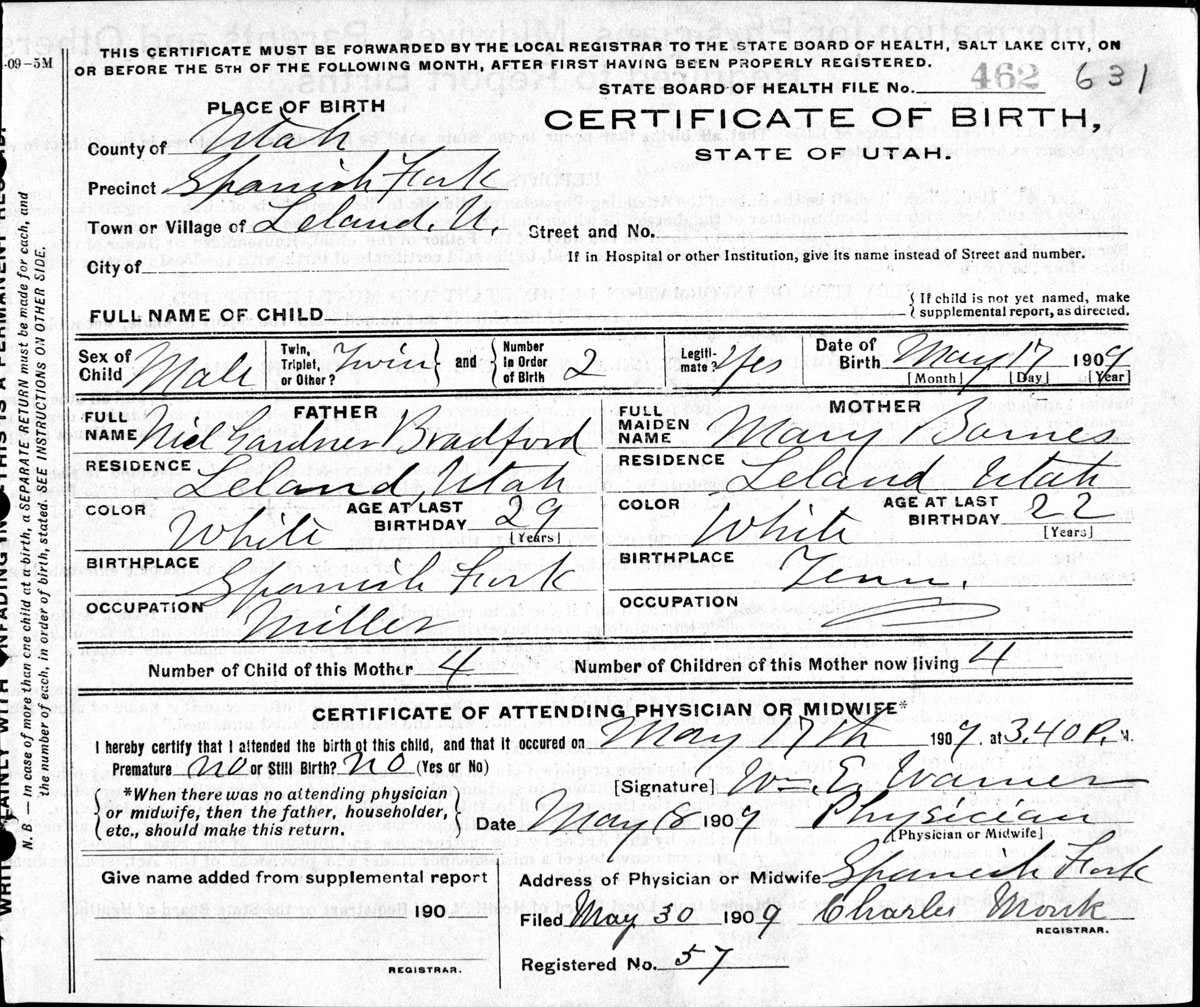 -09-5M
THIS CERTIFICATE MUST BE FORWARDED BY THE LOCAL REGISTRAR TO THE STATE BOARD OF HEALTH, SALT LAKE CITY, ON
OR BEFORE THE 5TH OF THE FOLLOWING MONTH, AFTER FIRST HAVING BEEN PROPERLY REGISTERED.
STATE BOARD OF HEALTH FILE No. 462 631
PLACE OF BIRTH
CERTIFICATE OF BIRTH,
STATE OF UTAH.
County of Utah
Precinct Spanish Fork
Town or Village of Leland. U.
Street and No.
City of
If in Hospital or other Institution, give its name instead of Street and number.
FULL NAME OF CHILD
{If child is not yet named, make
supplemental report, as directed.
Sex of Child Male
Twin, Triplet, or Other? Twin } and { Number in Order of Birth 2
Legitimate? Yes
Date of Birth May 17 1909
[Month] [Day] [Year]
FATHER
FULL NAME Niel Gardner Bradford
RESIDENCE Leland, Utah
COLOR White
AGE AT LAST BIRTHDAY 29
[Years]
BIRTHPLACE Spanish Fork
OCCUPATION Miller
MOTHER
FULL MAIDEN NAME Mary Barnes
RESIDENCE Leland Utah
COLOR White
AGE AT LAST BIRTHDAY 22
[Years]
BIRTHPLACE Tenn.
OCCUPATION
Number of Child of this Mother 4 Number of Children of this Mother now living 4
CERTIFICATE OF ATTENDING PHYSICIAN OR MIDWIFE*
I hereby certify that I attended the birth of this child, and that it occured on May 17th 1909. at 3.40 P. M.
Premature no or Still Birth? no (Yes or No)
[Signature] Wm. E. Warner
*When there was no attending physician
or midwife, then the father, householder,
etc., should make this return.
Date May 18 1909 Physician
[Physician or Midwife]
Give name added from supplemental report
190
REGISTRAR.
Address of Physician or Midwife Spanish Fork
Filed May 30 1909 Charles Monk
REGISTRAR.
Registered No. 57
N. B.—In case of more than one child at a birth, a SEPARATE RETURN must be made for each, and
the number of each, in order of birth, stated. SEE INSTRUCTIONS ON OTHER SIDE.